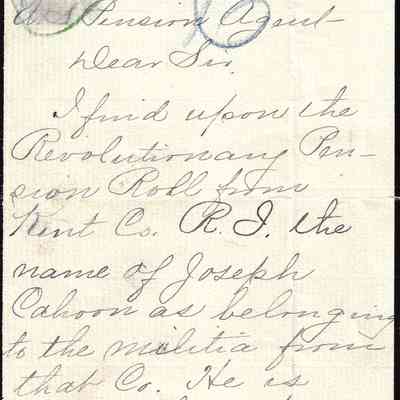 Pension Agent
Dear Sir,
I find upon the
Revolutionary Pen-
sion Roll from
Kent Co. R. I. the
name of Joseph
Cahoon as belonging
to the militia from
that Co. He is